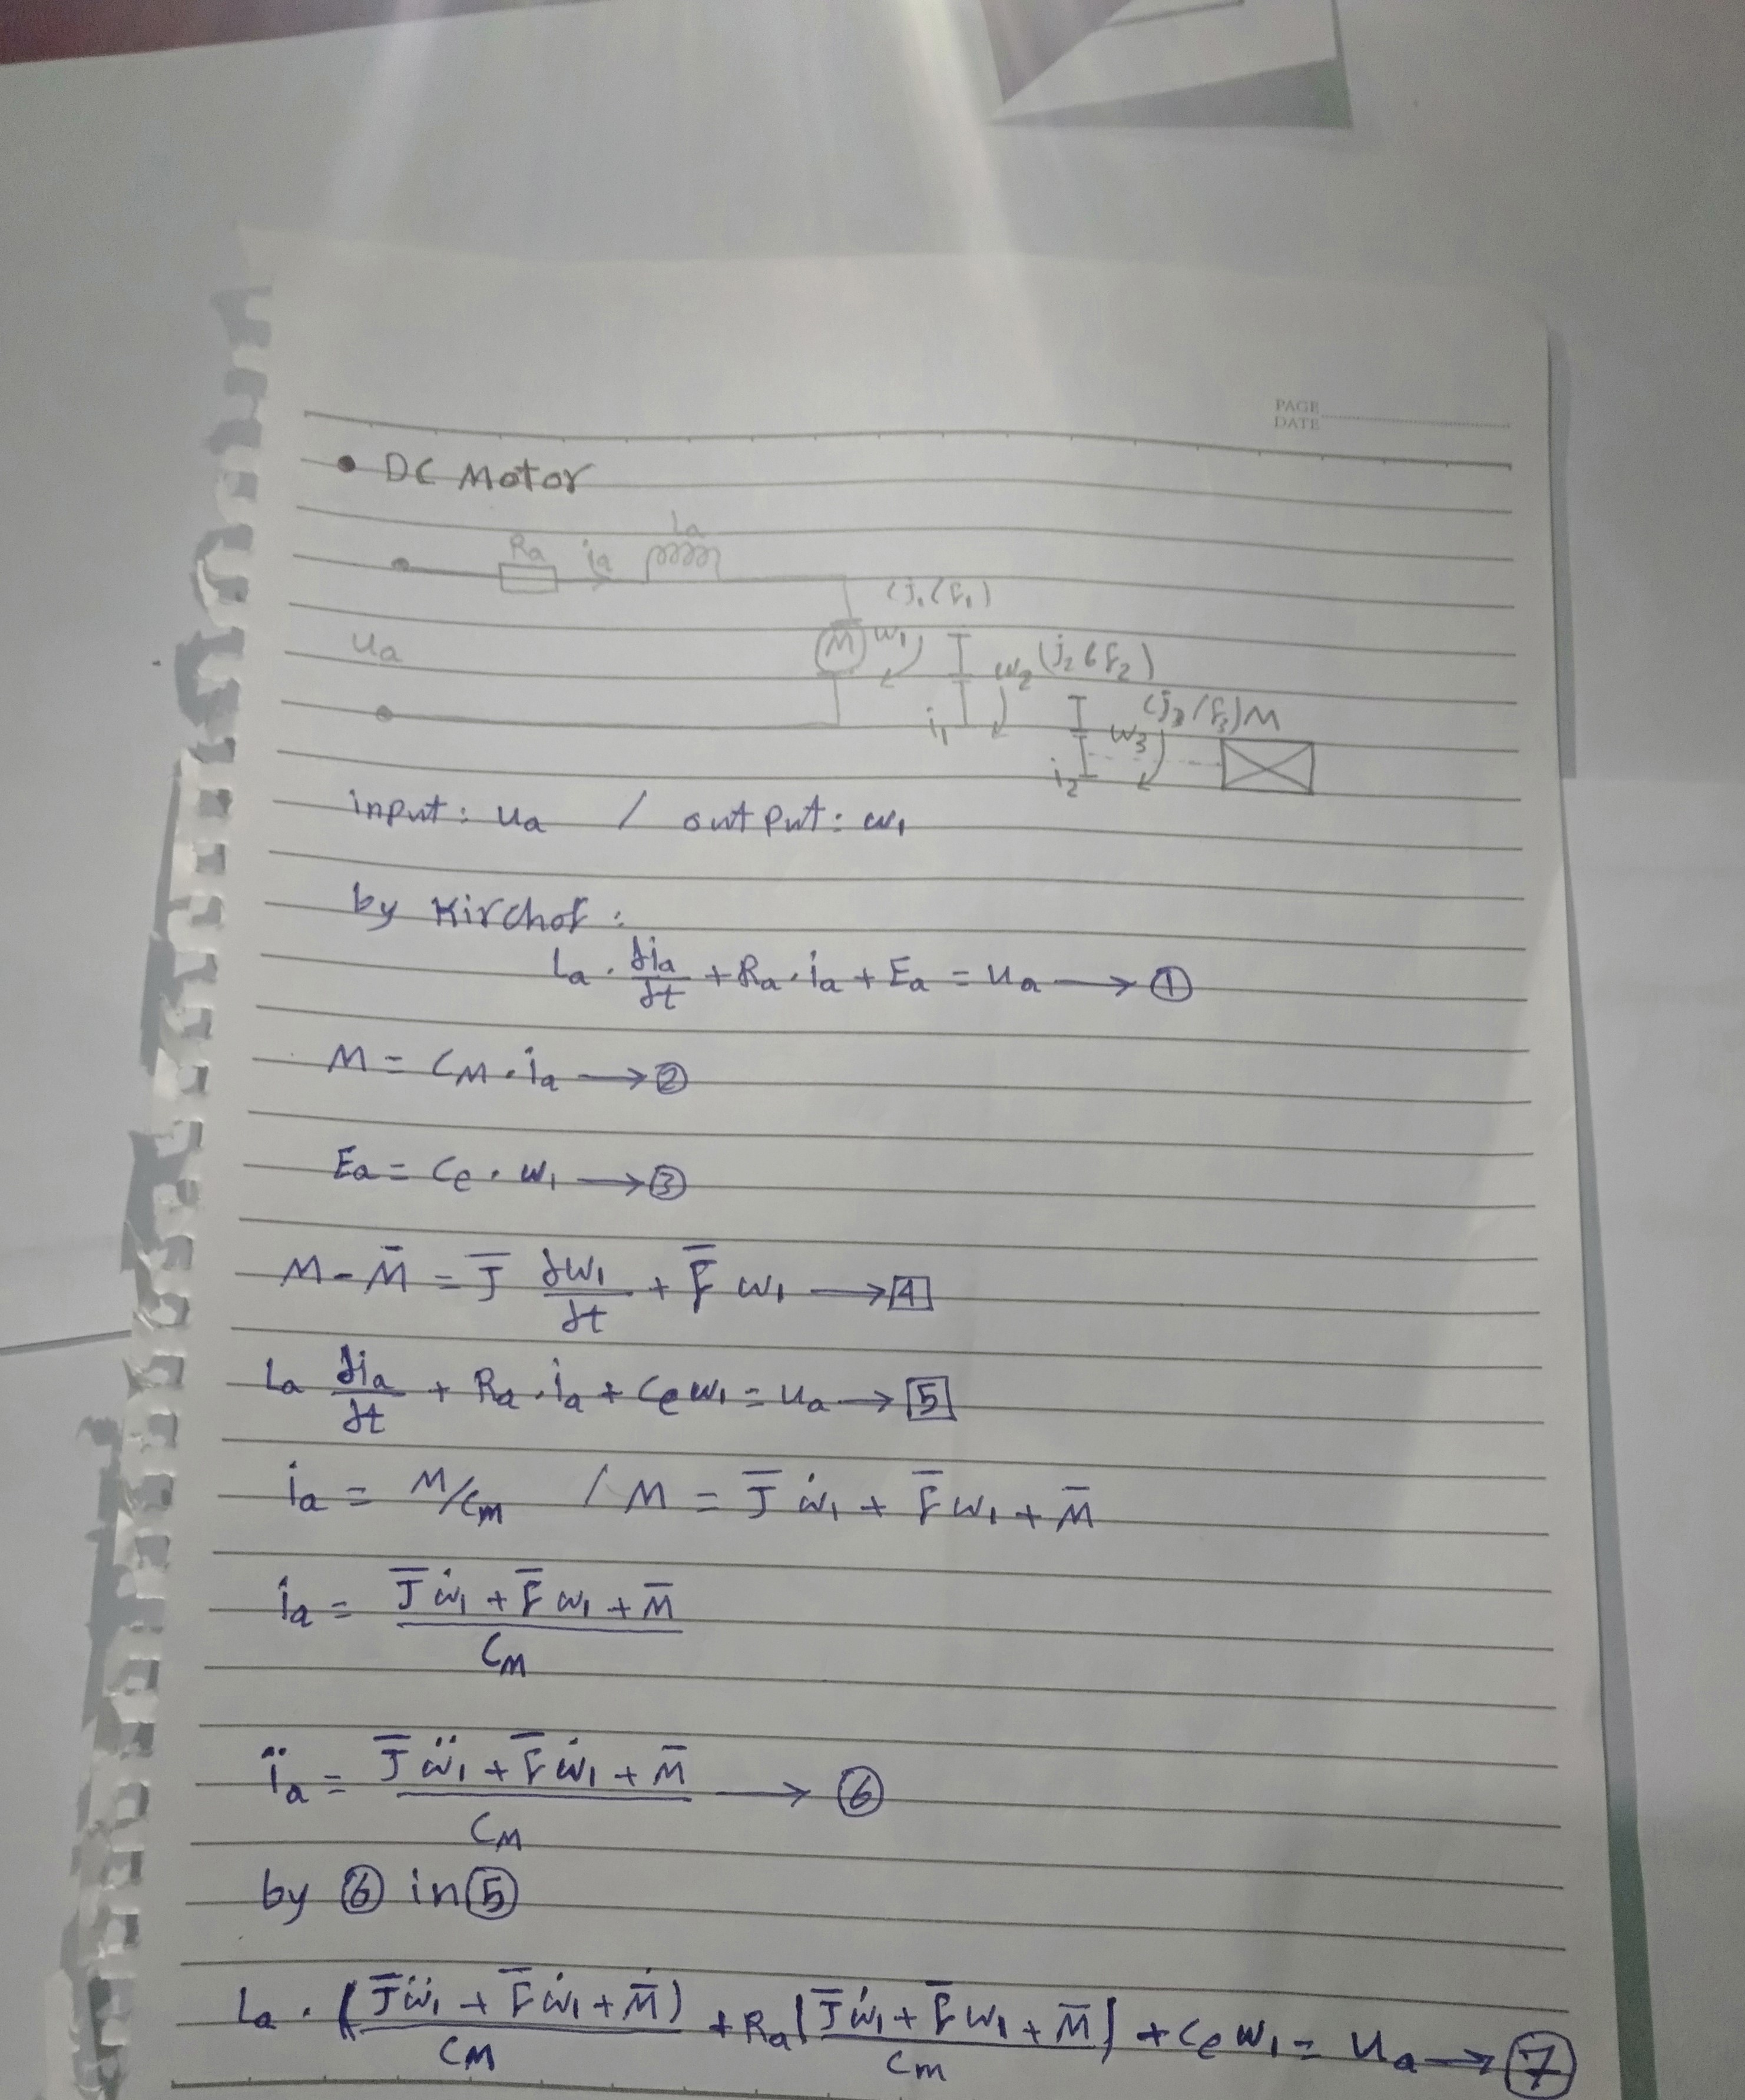 PAGE
DATE
• DC Motor
Ra ia La
(J1(F1)
ua M w1 w2 (J2 6 F2)
i1 (J3/F3)M
w3
i2
input: ua / output: w1
by Kirchof:
La . dia/dt + Ra . ia + Ea = ua → ①
M = CM . ia → ②
Ea = Ce . w1 → ③
M - M̄ = J̄ dw1/dt + F̄ w1 → [4]
La dia/dt + Ra . ia + Ce w1 = ua → [5]
ia = M/Cm / M = J̄ ẇ1 + F̄ w1 + M̄
ia = (J̄ ẇ1 + F̄ w1 + M̄)/CM
ïa = (J̄ ẅ1 + F̄ ẇ1 + M̄)/CM → ⑥
by ⑥ in ⑤
La . (J̄ẅ1 + F̄ẇ1 + M̄̇)/CM + Ra (J̄ẇ1 + F̄ w1 + M̄)/Cm + Ce w1 = ua → ⑦